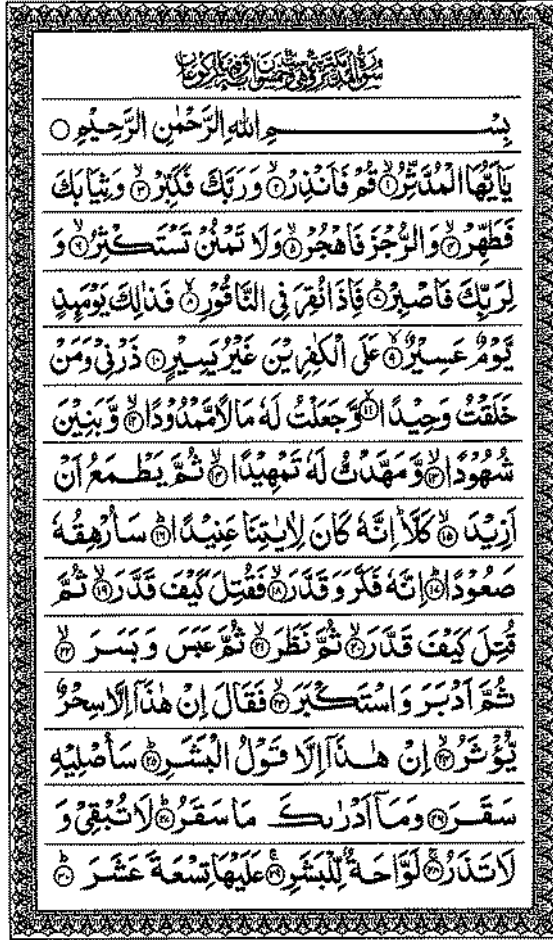 سورة المدثر مكية وهي ست وخمسون آية وفيها ركوعان
بِسْمِ اللهِ الرَّحْمٰنِ الرَّحِيْمِ ○
يٰۤاَيُّهَا الْمُدَّثِّرُ ۙ﴿۱﴾ قُمْ فَاَنْذِرْ ۙ﴿۲﴾ وَرَبَّكَ فَكَبِّرْ ۙ﴿۳﴾ وَثِيَابَكَ
فَطَهِّرْ ۙ﴿۴﴾ وَالرُّجْزَ فَاهْجُرْ ۙ﴿۵﴾ وَلَا تَمْنُنْ تَسْتَكْثِرُ ۙ﴿۶﴾ وَ
لِرَبِّكَ فَاصْبِرْ ؕ﴿۷﴾ فَاِذَا نُقِرَ فِى النَّاقُوْرِ ۙ﴿۸﴾ فَذٰلِكَ يَوْمَىِٕذٍ
يَّوْمٌ عَسِيْرٌ ۙ﴿۹﴾ عَلَى الْكٰفِرِيْنَ غَيْرُ يَسِيْرٍ ﴿۱۰﴾ ذَرْنِىْ وَمَنْ
خَلَقْتُ وَحِيْدًا ۙ﴿۱۱﴾ وَّجَعَلْتُ لَهٗ مَالًا مَّمْدُوْدًا ۙ﴿۱۲﴾ وَّبَنِيْنَ
شُهُوْدًا ۙ﴿۱۳﴾ وَّمَهَّدْتُّ لَهٗ تَمْهِيْدًا ۙ﴿۱۴﴾ ثُمَّ يَطْمَعُ اَنْ
اَزِيْدَ ۙ﴿۱۵﴾ كَلَّا ؕ اِنَّهٗ كَانَ لِاٰيٰتِنَا عَنِيْدًا ؕ﴿۱۶﴾ سَاُرْهِقُهٗ
صَعُوْدًا ؕ﴿۱۷﴾ اِنَّهٗ فَكَّرَ وَ قَدَّرَ ۙ﴿۱۸﴾ فَقُتِلَ كَيْفَ قَدَّرَ ۙ﴿۱۹﴾ ثُمَّ
قُتِلَ كَيْفَ قَدَّرَ ۙ﴿۲۰﴾ ثُمَّ نَظَرَ ۙ﴿۲۱﴾ ثُمَّ عَبَسَ وَ بَسَرَ ۙ﴿۲۲﴾
ثُمَّ اَدْبَرَ وَ اسْتَكْبَرَ ۙ﴿۲۳﴾ فَقَالَ اِنْ هٰذَاۤ اِلَّا سِحْرٌ
يُّؤْثَرُ ۙ﴿۲۴﴾ اِنْ هٰذَاۤ اِلَّا قَوْلُ الْبَشَرِ ؕ﴿۲۵﴾ سَاُصْلِيْهِ
سَقَرَ ﴿۲۶﴾ وَمَاۤ اَدْرٰىكَ مَا سَقَرُ ؕ﴿۲۷﴾ لَا تُبْقِىْ وَ
لَا تَذَرُ ۚ﴿۲۸﴾ لَوَّاحَةٌ لِّلْبَشَرِ ۚ﴿۲۹﴾ عَلَيْهَا تِسْعَةَ عَشَرَ ؕ﴿۳۰﴾